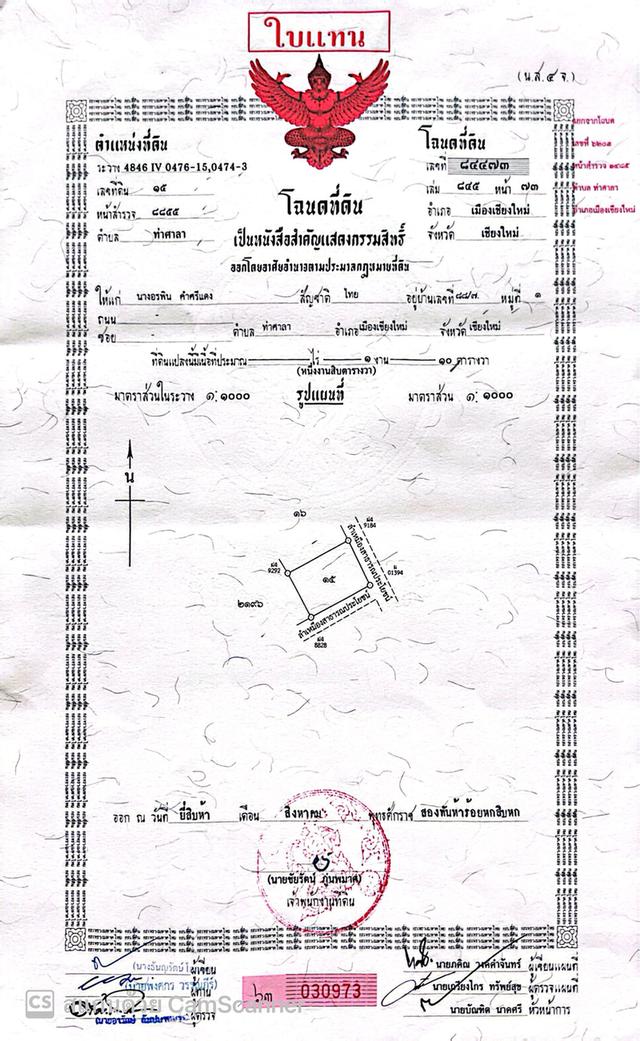 ใบแทน
(น.ส.๔ จ.)
ตำแหน่งที่ดิน
ระวาง 4846 IV 0476-15,0474-3
เลขที่ดิน ๑๕
หน้าสำรวจ ๘๘๕๕
ตำบล ท่าศาลา
โฉนดที่ดิน
เลขที่ ๘๔๔๗๓
เล่ม ๘๔๕ หน้า ๗๓
อำเภอ เมืองเชียงใหม่
จังหวัด เชียงใหม่
เลขที่ ๖๒๐๑
หน้าสำรวจ
ตำบล ท่าศาลา
อำเภอเมืองเชียงใหม่
โฉนดที่ดิน
เป็นหนังสือสำคัญแสดงกรรมสิทธิ์
ออกโดยอาศัยอำนาจตามประมวลกฎหมายที่ดิน
ให้แก่ นางอรพิน คำศรีแดง สัญชาติ ไทย อยู่บ้านเลขที่ ๘๘/๗ หมู่ที่ ๑
ถนน
ซอย - ตำบล ท่าศาลา อำเภอเมืองเชียงใหม่ จังหวัด เชียงใหม่
ที่ดินแปลงนี้มีเนื้อที่ประมาณ - ไร่ ๑ งาน ๑๐ ตารางวา
(หนึ่งงานสิบตารางวา)
มาตราส่วนในระวาง ๑:๑๐๐๐ รูปแผนที่ มาตราส่วน ๑:๑๐๐๐
น
๑๖
ผ4
9184
ผ4
9292
ลำเหมืองสาธารณประโยชน์
01394
๑๕
๒๑๙๖
ลำเหมืองสาธารณประโยชน์
ผ4
8828
ออก ณ วันที่ ยี่สิบห้า เดือน สิงหาคม พุทธศักราช สองพันห้าร้อยหกสิบหก
(นายชัยรัตน์
เจ้าพนักงานที่ดิน
ผู้เขียน
ผู้ทาน
ผู้ตรวจ
๖๓ 030973
นายภคิณ วงศ์คำจันทร์ ผู้เขียนแผนที่
นายเกรียงไกร ทรัพย์สุข ผู้ตรวจแผนที่
นายบัณฑิต นาคศรี หัวหน้าการ
CS CamScanner